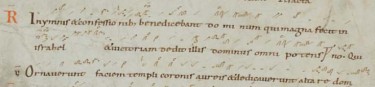 R INymnis &confessio nib; benedicebant do mi num quimagna fecit in
israhel &uictoriam dedit illis dominus omni potens Qui
V Ornauerunt faciem templi coronis aureis &dedicauerunt altare dom